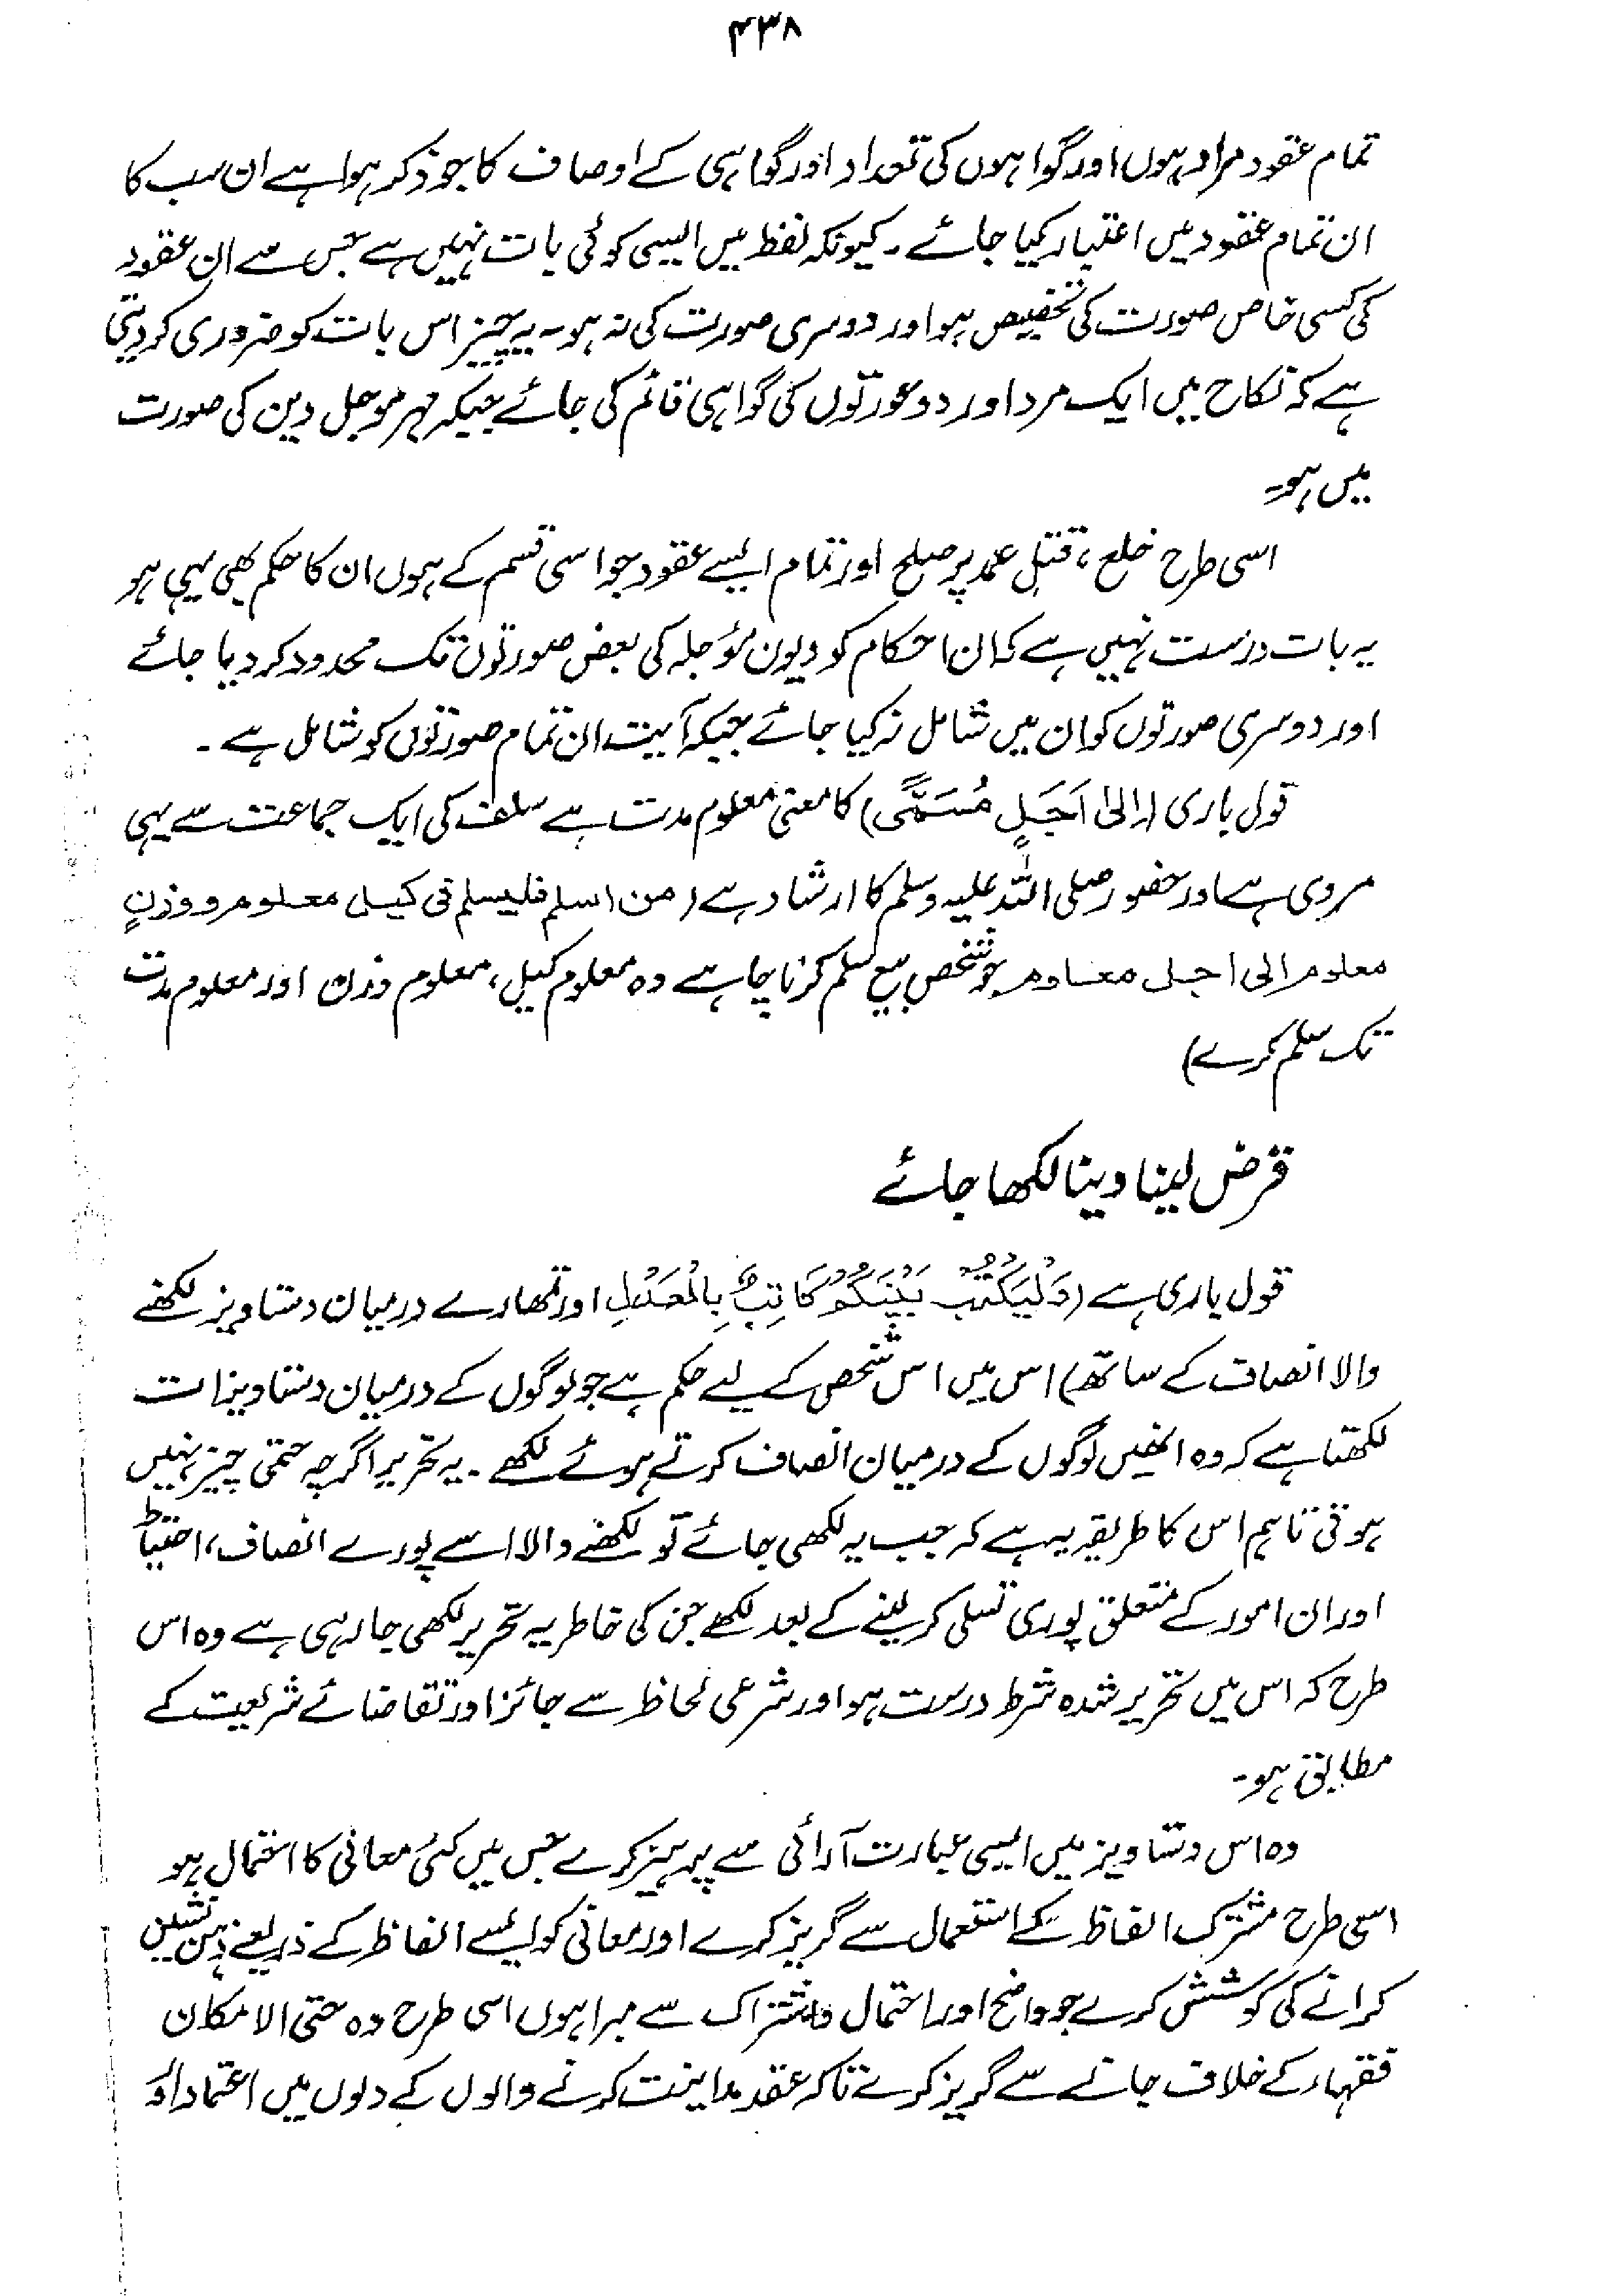 ۴۳۸
تمام عقود مراد ہوں اور گواہوں کی تعداد اور گواہی کے اوصاف کا جو ذکر ہوا ہے ان سب کا
ان تمام عقود میں اعتبار کیا جائے۔ کیونکہ لفظ میں ایسی کوئی بات نہیں ہے جس سے ان عقود
کی کسی خاص صورت کی تخصیص ہو اور دوسری صورت کی نہ ہو۔ یہ چیز اس بات کو ضروری کر دیتی
ہے کہ نکاح میں ایک مرد اور دو عورتوں کی گواہی قائم کی جائے جبکہ مہر مؤجل دین کی صورت
میں ہو۔
اسی طرح خلع، قتل عمد پر صلح اور تمام ایسے عقود جو اسی قسم کے ہوں ان کا حکم بھی یہی ہو
یہ بات درست نہیں ہے کہ ان احکام کو دیون مؤجلہ کی بعض صورتوں تک محدود کر دیا جائے
اور دوسری صورتوں کو ان میں شامل نہ کیا جائے جبکہ آیت ان تمام صورتوں کو شامل ہے۔
قول باری (اِلٰی اَجَلٍ مُسَمًّی) کا معنی معلوم مدت ہے سلف کی ایک جماعت سے یہی
مروی ہے اور حضور صلی اللہ علیہ وسلم کا ارشاد ہے (من اسلم فلیسلم فی کیل معلوم و وزنٍ
معلوم الی اجل معلوم جو شخص بیع سلم کرنا چاہے وہ معلوم کیل، معلوم وزن اور معلوم مدت
تک سلم کرے)
قرض لینا دینا لکھا جائے
قول باری ہے (وَلْیَکْتُبْ بَیْنَکُمْ کَاتِبٌ بِالْعَدْلِ اور تمھارے درمیان دستاویز لکھنے
والا انصاف کے ساتھ) اس میں اس شخص کے لیے حکم ہے جو لوگوں کے درمیان دستاویزات
لکھتا ہے کہ وہ انھیں لوگوں کے درمیان انصاف کرتے ہوئے لکھے۔ یہ تحریر اگرچہ حتمی چیز نہیں
ہوتی تاہم اس کا طریقہ یہ ہے کہ جب یہ لکھی جائے تو لکھنے والا اسے پورے انصاف، احتیاط
اور ان امور کے متعلق پوری تسلی کر لینے کے بعد لکھے جن کی خاطر یہ تحریر لکھی جا رہی ہے وہ اس
طرح کہ اس میں تحریر شدہ شرط درست ہو اور شرعی لحاظ سے جائز اور تقاضائے شریعت کے
مطابق ہو۔
وہ اس دستاویز میں ایسی عبارت آرائی سے پرہیز کرے جس میں کئی معانی کا احتمال ہو
اسی طرح مشترک الفاظ کے استعمال سے گریز کرے اور معانی کو ایسے الفاظ کے ذریعے ذہن نشین
کرانے کی کوشش کرے جو واضح اور احتمال و اشتراک سے مبرا ہوں اسی طرح وہ حتی الامکان
فقہاء کے خلاف جانے سے گریز کرے تاکہ عقد مداینت کرنے والوں کے دلوں میں اعتماد اور